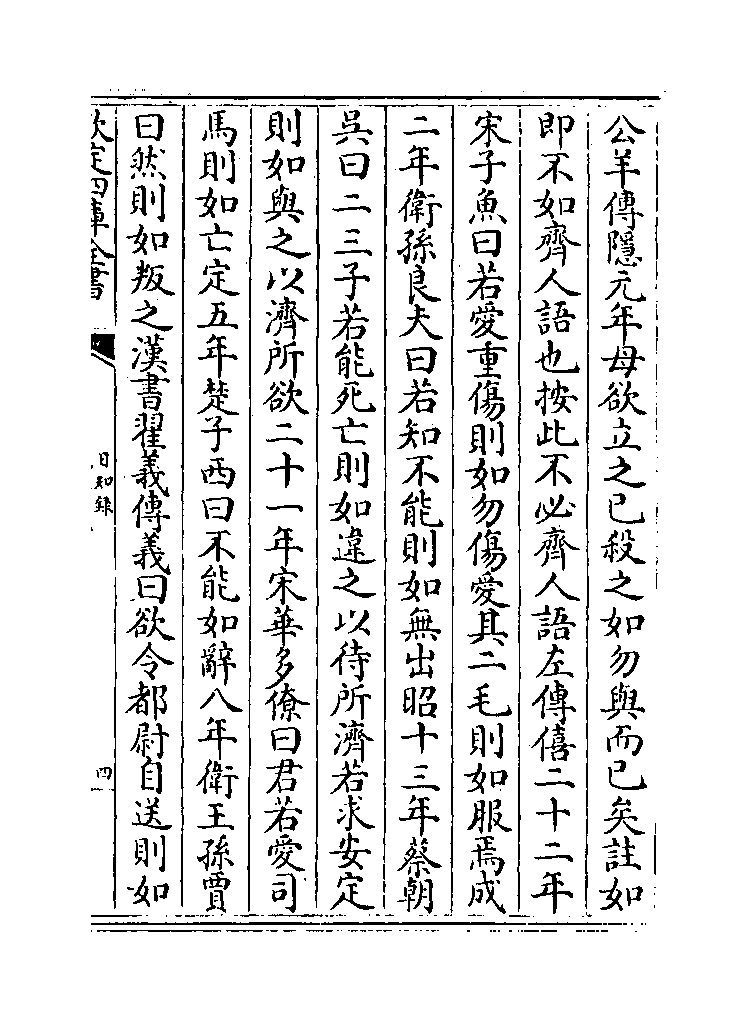 公羊傳隱元年母欲立之已殺之如勿與而已矣註如
即不如齊人語也按此不必齊人語左傳僖二十二年
宋子魚曰若愛重傷則如勿傷愛其二毛則如服焉成
二年衛孫良夫曰若知不能則如無出昭十三年蔡朝
吳曰二三子若能死亡則如違之以待所濟若求安定
則如與之以濟所欲二十一年宋華多僚曰君若愛司
馬則如亡定五年楚子西曰不能如辭八年衛王孫賈
曰然則如叛之漢書翟義傳義曰欲令都尉自送則如
欽定四庫全書
日知錄
四